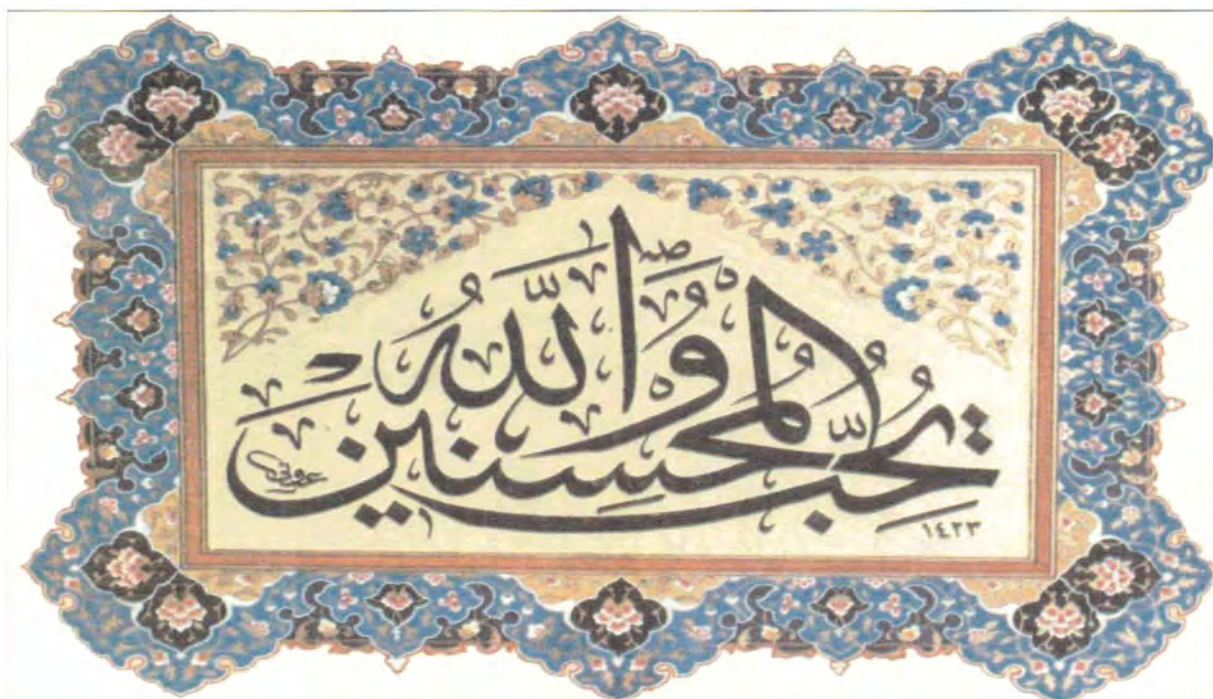 وَاللَّهُ يُحِبُّ الْمُحْسِنِينَ
١٤٢٣